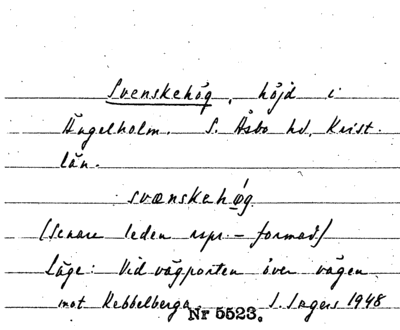 Svenskehög, höjd i
Ängelholm. S. Åsbo hd, Krist.
län.
svænskehǿg
(Senare leden rspr.-formad.)
Läge: Vid vägporten över vägen
mot Kebbelberga. I. Ingers 1948
Nr 5523.